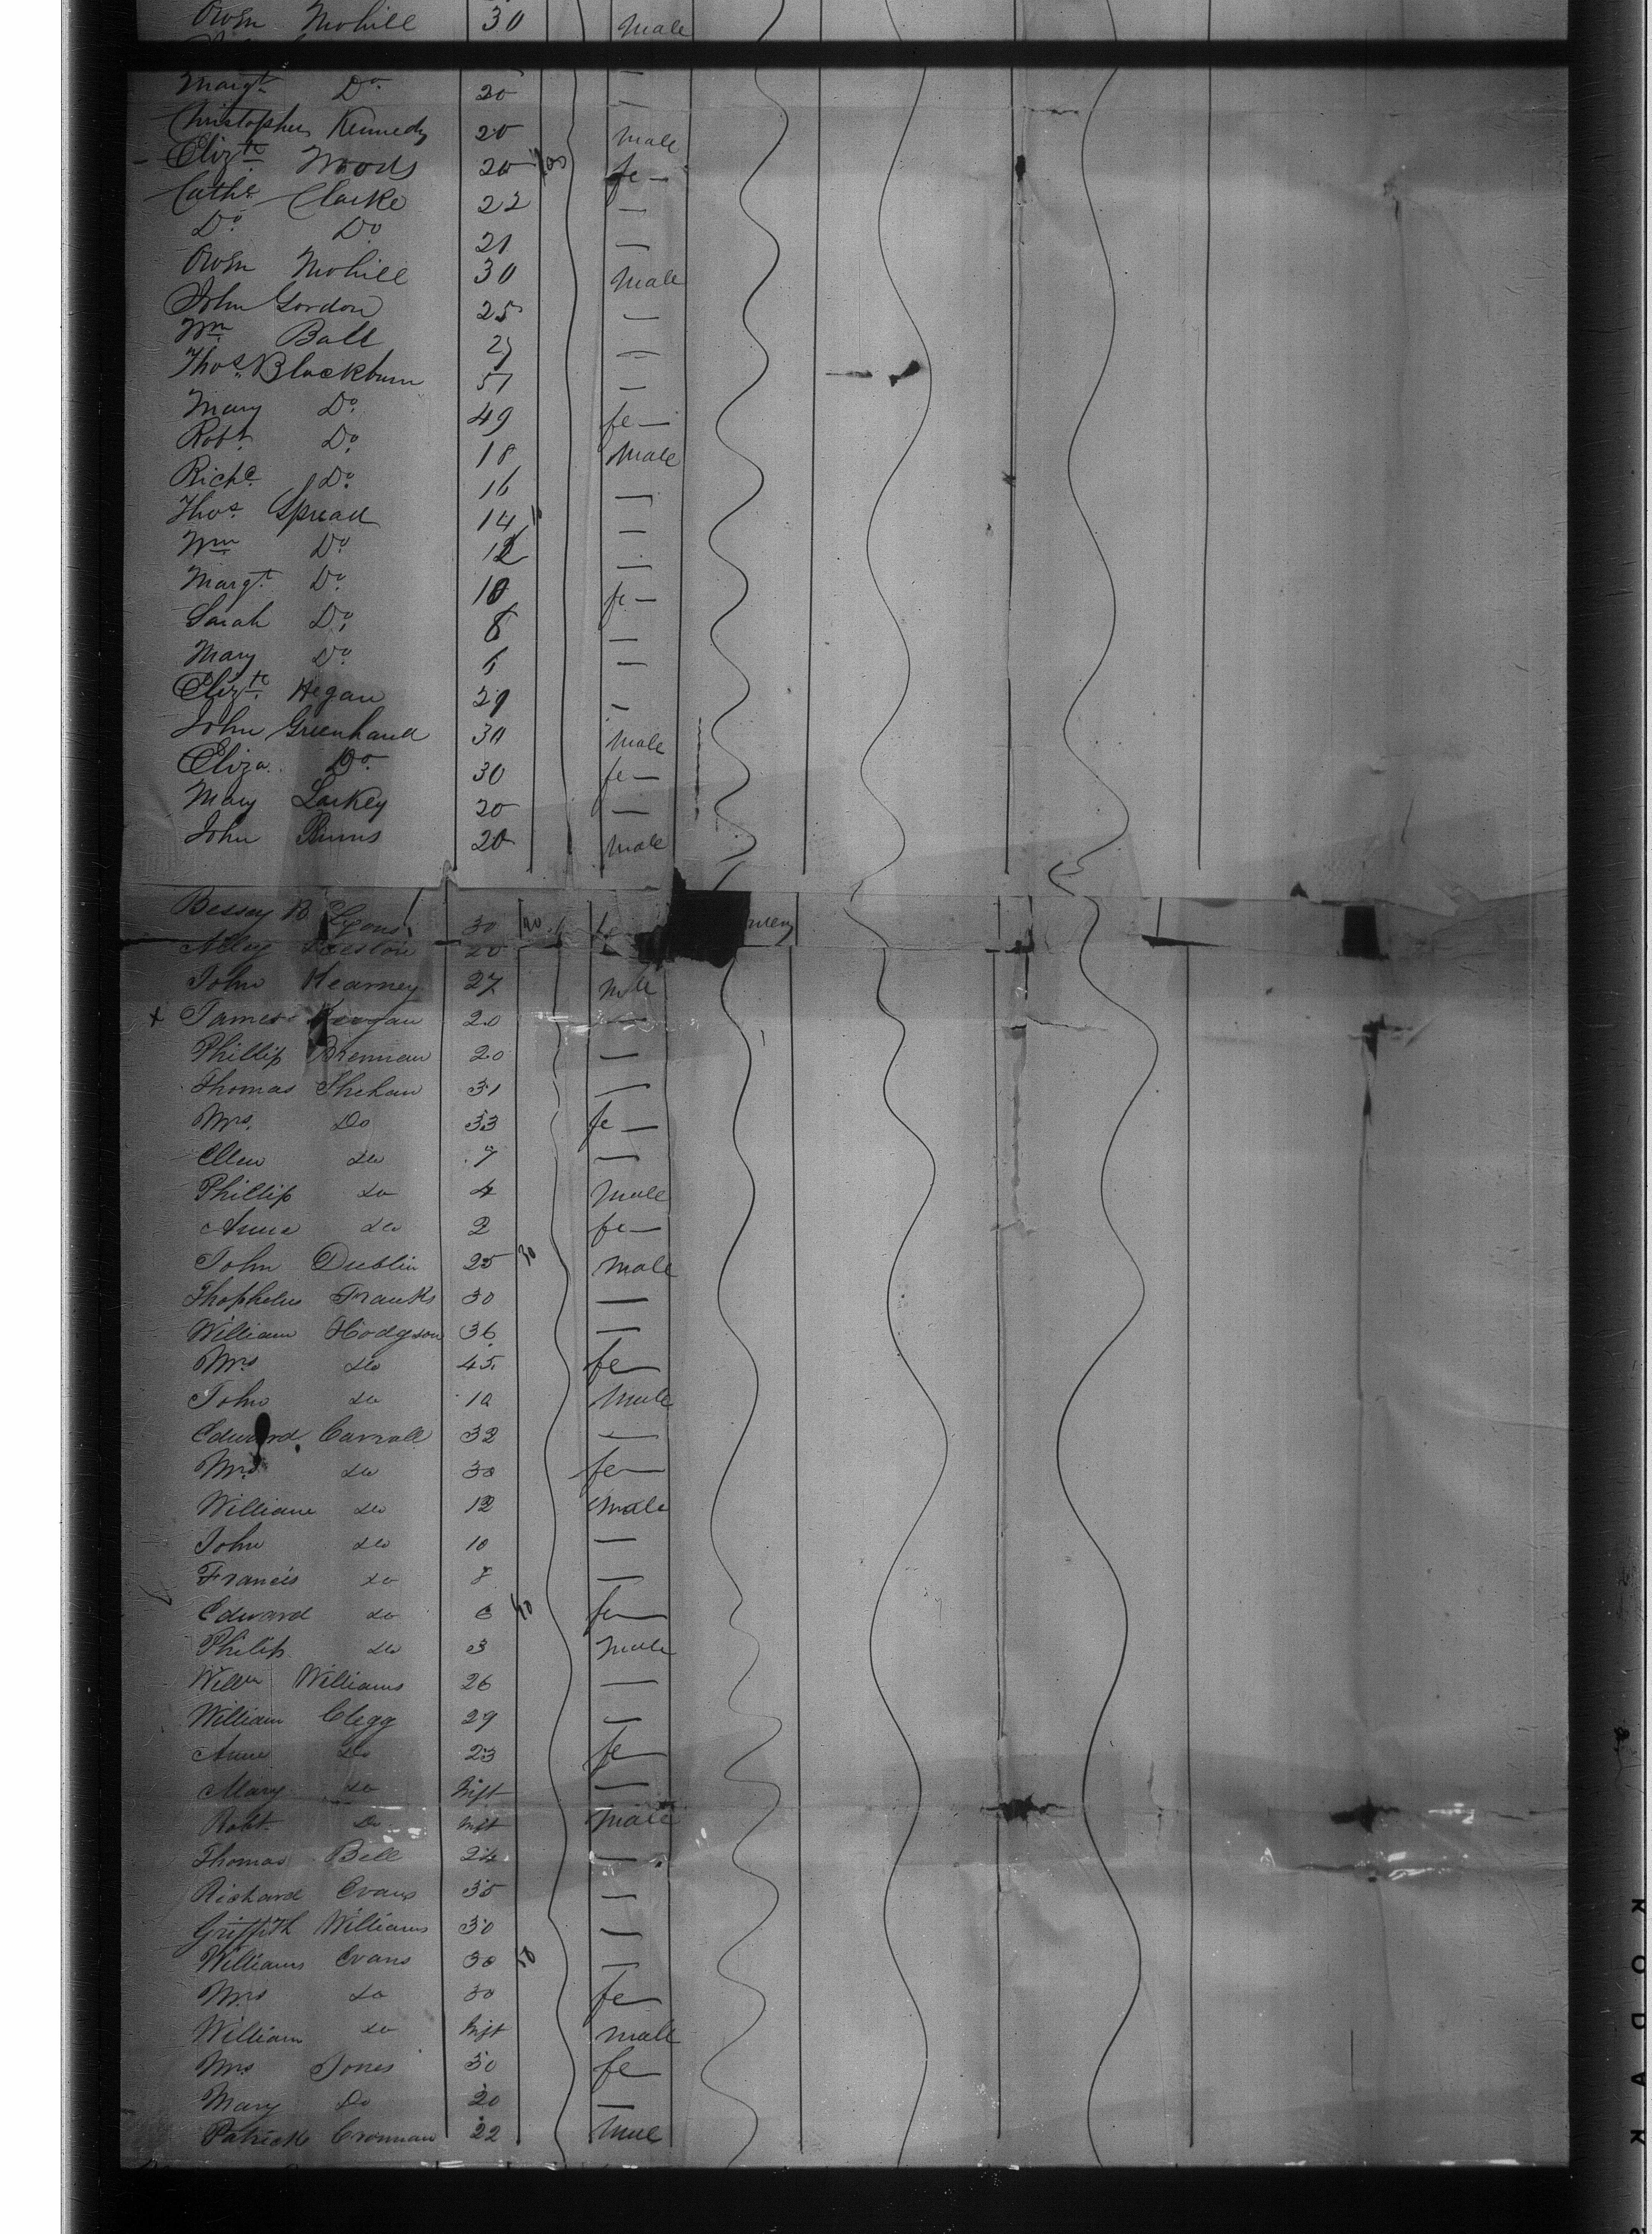 Owen Mohill 30 Male
Margt Do 20 —
Christopher Kennedy 20 Male
Elizth Woods 20 fe —
Cathe Clarke 22 —
Do Do 21 —
Owen Mohill 30 Male
John Gordon 25 —
Wm Ball 27 —
Thos Blackburn 51 —
Mary Do 49 fe —
Robt Do 18 Male
Richd Do 16 —
Thos 14 —
Wm Do 12 —
Margt Do 10 fe —
Sarah Do 8 —
Mary Do 6 —
Elizth Hegan 29 —
John Greenhand 30 Male
Eliza Do 30 fe —
Mary Larkey 20 —
John Burns 20 Male
Bessey B Lyons 30 20 fe
Alley 20
John Kearney 27 Male
x James Keegan 20 —
Phillip Brennan 20 —
Thomas Shehan 31 —
Mrs Do 33 fe —
Ellen do 7 —
Phillip do 4 Male
Anne do 2 fe —
John Dublin 25 30 Male
Thophelus Franks 30 —
William Hodgson 36 —
Mrs do 45 fe —
John do 10 Male
Edward Carroll 32 —
Mrs do 30 fe —
William do 12 Male
John do 10 —
Francis do 8 —
Edward do 6 40 fe —
Philip do 3 Male
Willm Williams 26 —
William Clegg 29 —
Anne do 23 fe —
Mary do Inft —
Robt Do Inft Male
Thomas Bell 24 —
Richard Evans 35 —
Griffith Williams 30 —
Williams Evans 30 50 —
Mrs do 30 fe —
William do Inft Male
Mrs Jones 50 fe —
Mary Do 20 —
Patrick Cronnan 22 Male
KODAK